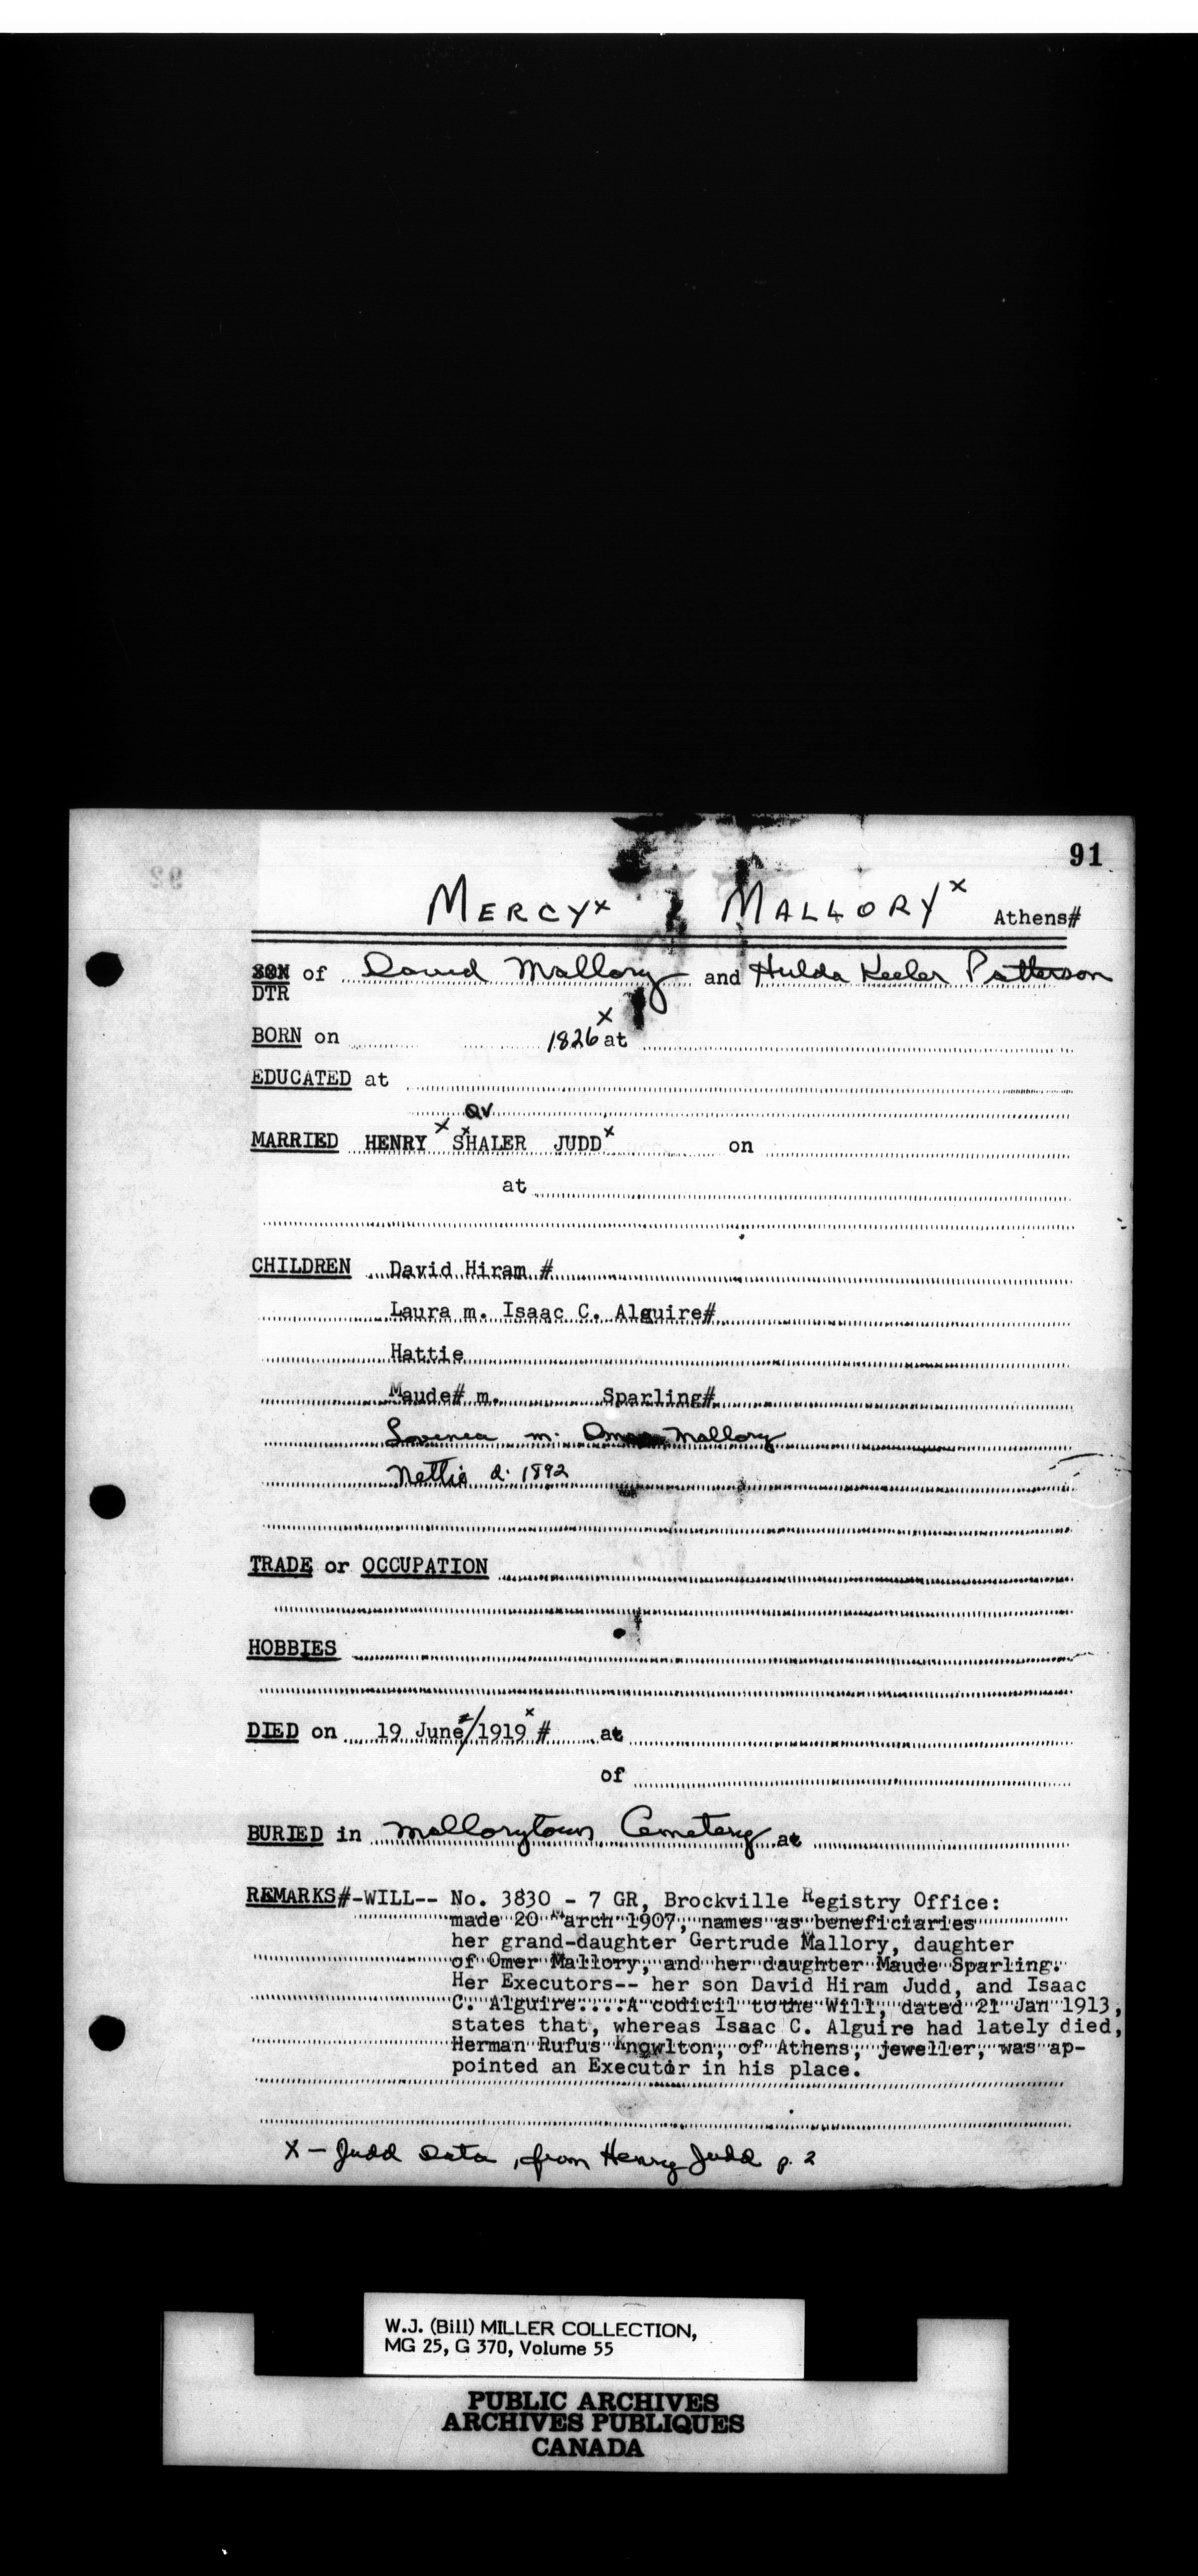 91
92
MERCYx MALLORYx Athens#
SON of David Mallory and Hulda Keeler Patterson
DTR
BORN on 1826x at
EDUCATED at
QV
MARRIED HENRY x SxHALER JUDDx on
at
CHILDREN David Hiram #
Laura m. Isaac C. Alguire#
Hattie
Maude# m. Sparling#
Lovenea m. Mallory
Nettie d. 1892
TRADE or OCCUPATION
HOBBIES
DIED on 19 June/1919x # at
of
BURIED in Mallorytown Cemetery at
REMARKS#-WILL-- No. 3830 - 7 GR, Brockville Registry Office:
made 20 March 1907, names as beneficiaries
her grand-daughter Gertrude Mallory, daughter
of Omer Mallory, and her daughter Maude Sparling.
Her Executors-- her son David Hiram Judd, and Isaac
C. Alguire....A codicil to the Will, dated 21 Jan 1913,
states that, whereas Isaac C. Alguire had lately died,
Herman Rufus Knowlton, of Athens, jeweller, was ap-
pointed an Executor in his place.
x - Judd Data, from Henry Judd p. 2
W.J. (Bill) MILLER COLLECTION,
MG 25, G 370, Volume 55
PUBLIC ARCHIVES
ARCHIVES PUBLIQUES
CANADA